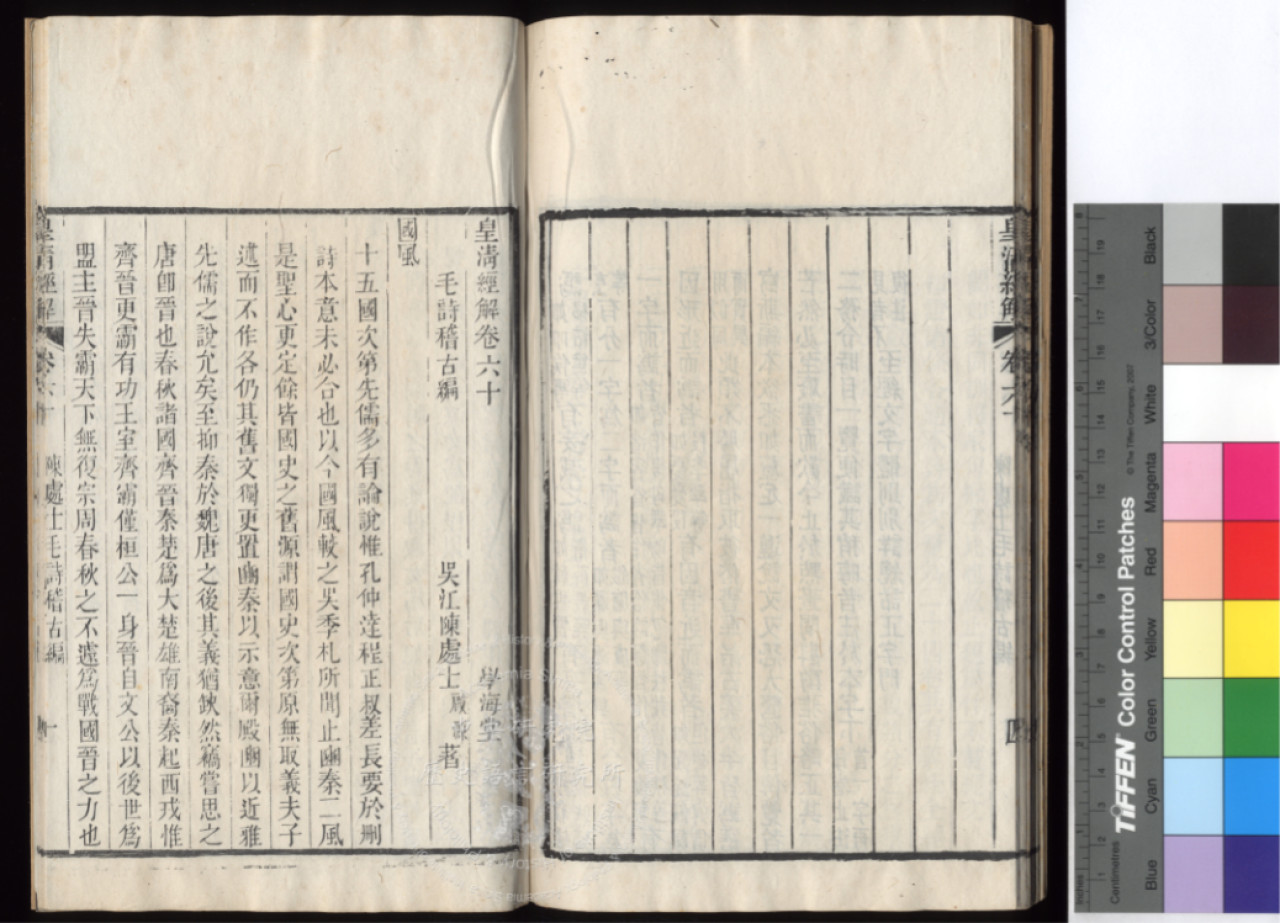 皇清經解
卷六十
皇清經解卷六十
學海堂
毛詩稽古編
吳江陳處士啟源著
國風
十五國次第先儒多有論說惟孔仲達程正叔差長要於刪
詩本意未必合也以今國風較之吳季札所聞止豳秦二風
是聖心更定餘皆國史之舊源謂國史次第原無取義夫子
述而不作各仍其舊文獨更置豳秦以示意爾殿豳以近雅
先儒之說允矣至抑秦於魏唐之後其義猶缺然竊嘗思之
唐卽晉也春秋諸國齊晉秦楚爲大楚雄南裔秦起西戎惟
齊晉更霸有功王室齊霸僅桓公一身晉自文公以後世爲
盟主晉失霸天下無復宗周春秋之不遽爲戰國晉之力也
皇清經解
卷六十
陳處士毛詩稽古編
一
TIFFEN Color Control Patches
© The Tiffen Company, 2007
Centimetres
Inches
Blue
Cyan
Green
Yellow
Red
Magenta
White
3/Color
Black